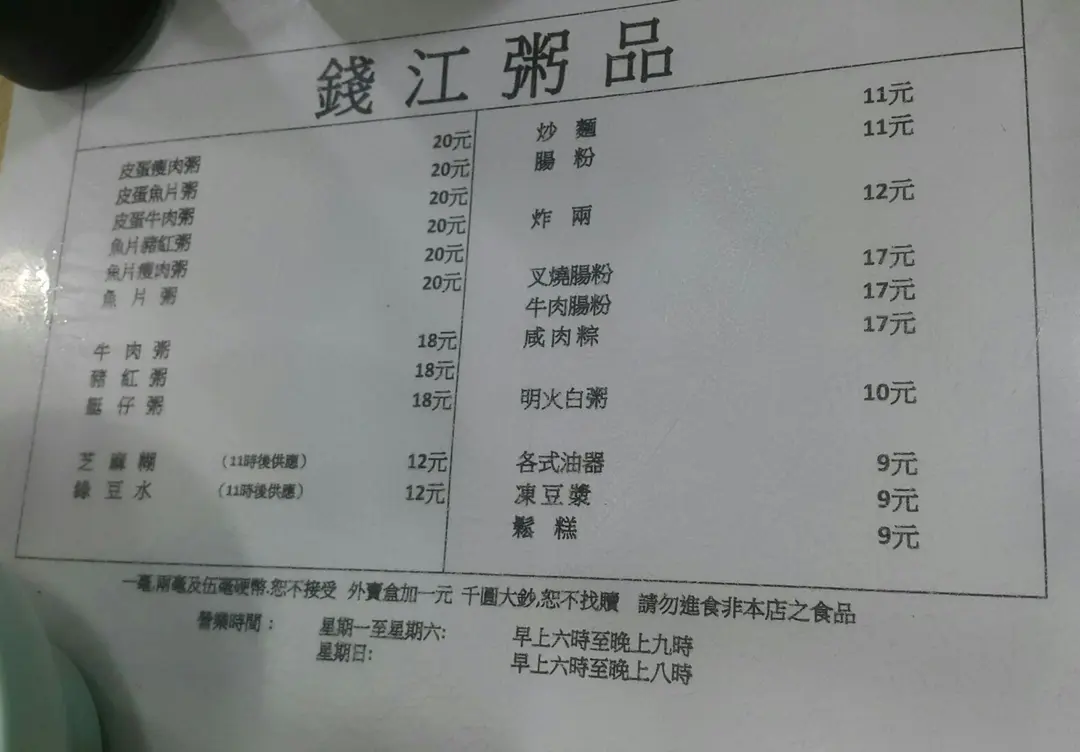 錢江粥品
皮蛋瘦肉粥 20元
皮蛋魚片粥 20元
皮蛋牛肉粥 20元
魚片豬紅粥 20元
魚片瘦肉粥 20元
魚片粥 20元
牛肉粥 18元
豬紅粥 18元
艇仔粥 18元
芝麻糊 (11時後供應) 12元
綠豆水 (11時後供應) 12元
炒麵 11元
腸粉 11元
炸兩 12元
叉燒腸粉 17元
牛肉腸粉 17元
咸肉粽 17元
明火白粥 10元
各式油器 9元
凍豆漿 9元
鬆糕 9元
一毫,兩毫及伍毫硬幣.恕不接受 外賣盒加一元 千圓大鈔,恕不找贖 請勿進食非本店之食品
營業時間： 星期一至星期六: 早上六時至晚上九時
星期日: 早上六時至晚上八時